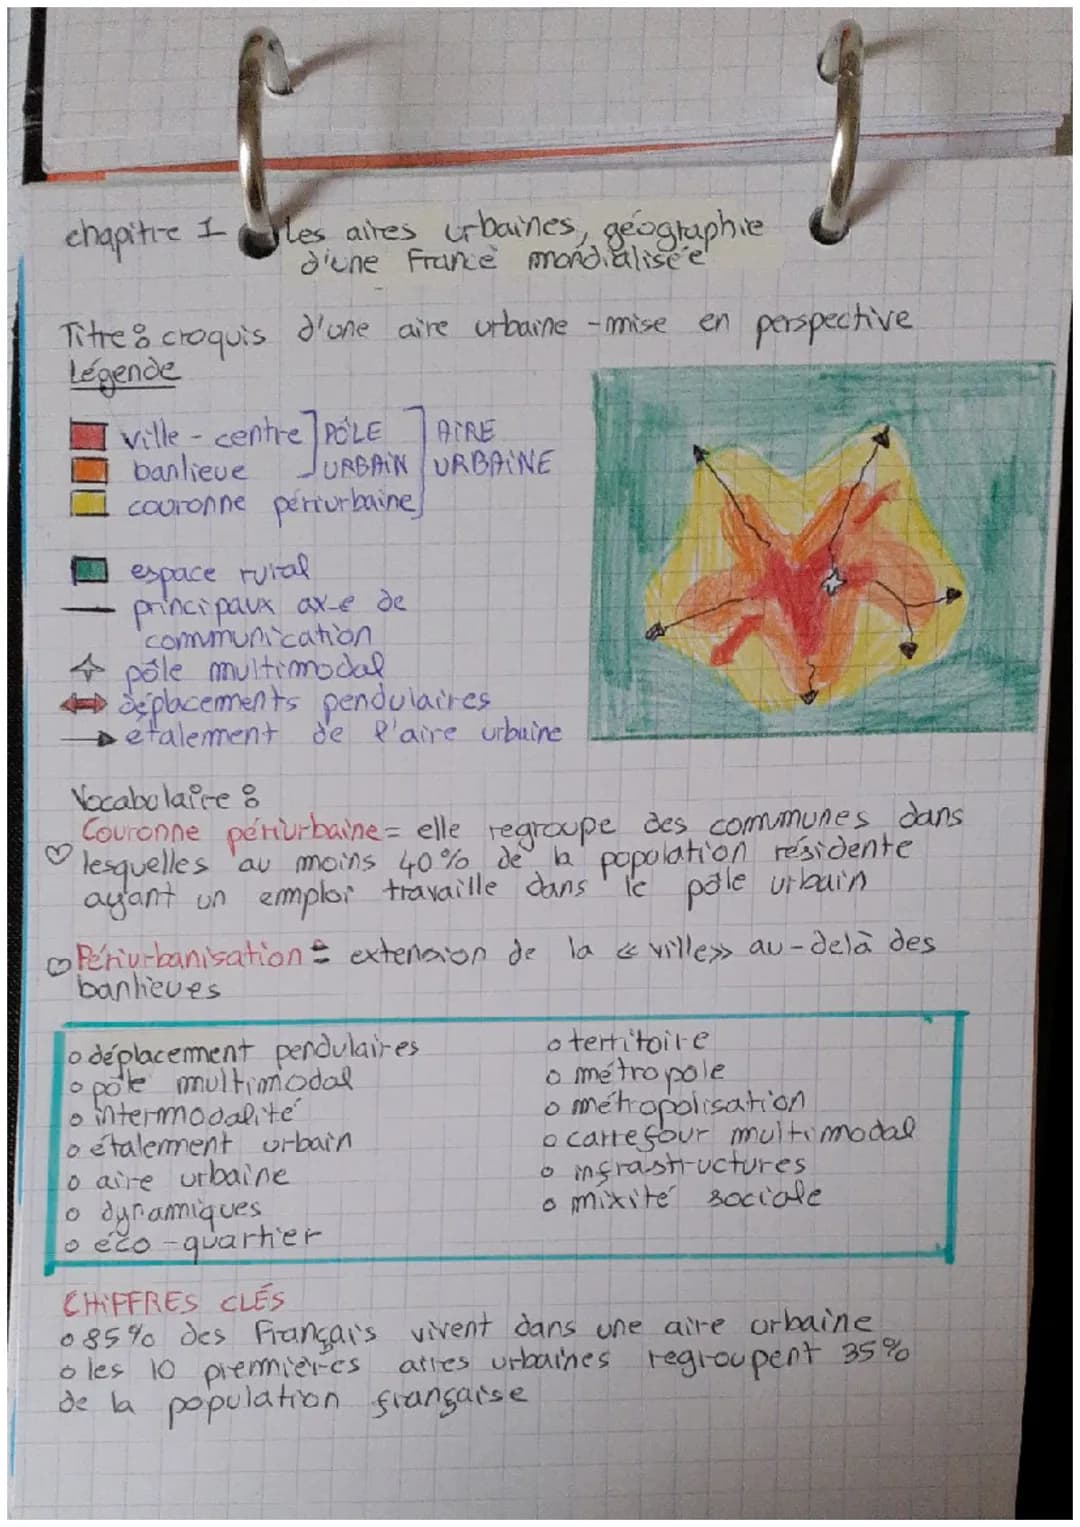 chapitre 1 Les aires urbaines, géographie
d'une France mondialisée
Titre : croquis d'une aire urbaine - mise en perspective
Légende
ville - centre ] PÔLE ] AIRE
banlieue URBAIN URBAINE
couronne périurbaine
espace rural
principaux axe de
communication
pôle multimodal
déplacements pendulaires
étalement de l'aire urbaine
Vocabulaire :
Couronne périurbaine = elle regroupe des communes dans
lesquelles au moins 40% de la population résidente
ayant un emploi travaille dans le pôle urbain
Périurbanisation = extension de la « ville» au-delà des
banlieues
o déplacement pendulaires
o pôle multimodal
o intermodalité
o étalement urbain
o aire urbaine
o dynamiques
o éco-quartier
o territoire
o métropole
o métropolisation
o carrefour multimodal
o infrastructures
o mixité sociale
CHIFFRES CLÉS
o 85% des Français vivent dans une aire urbaine
o les 10 premmières aires urbaines regroupent 35%
de la population française